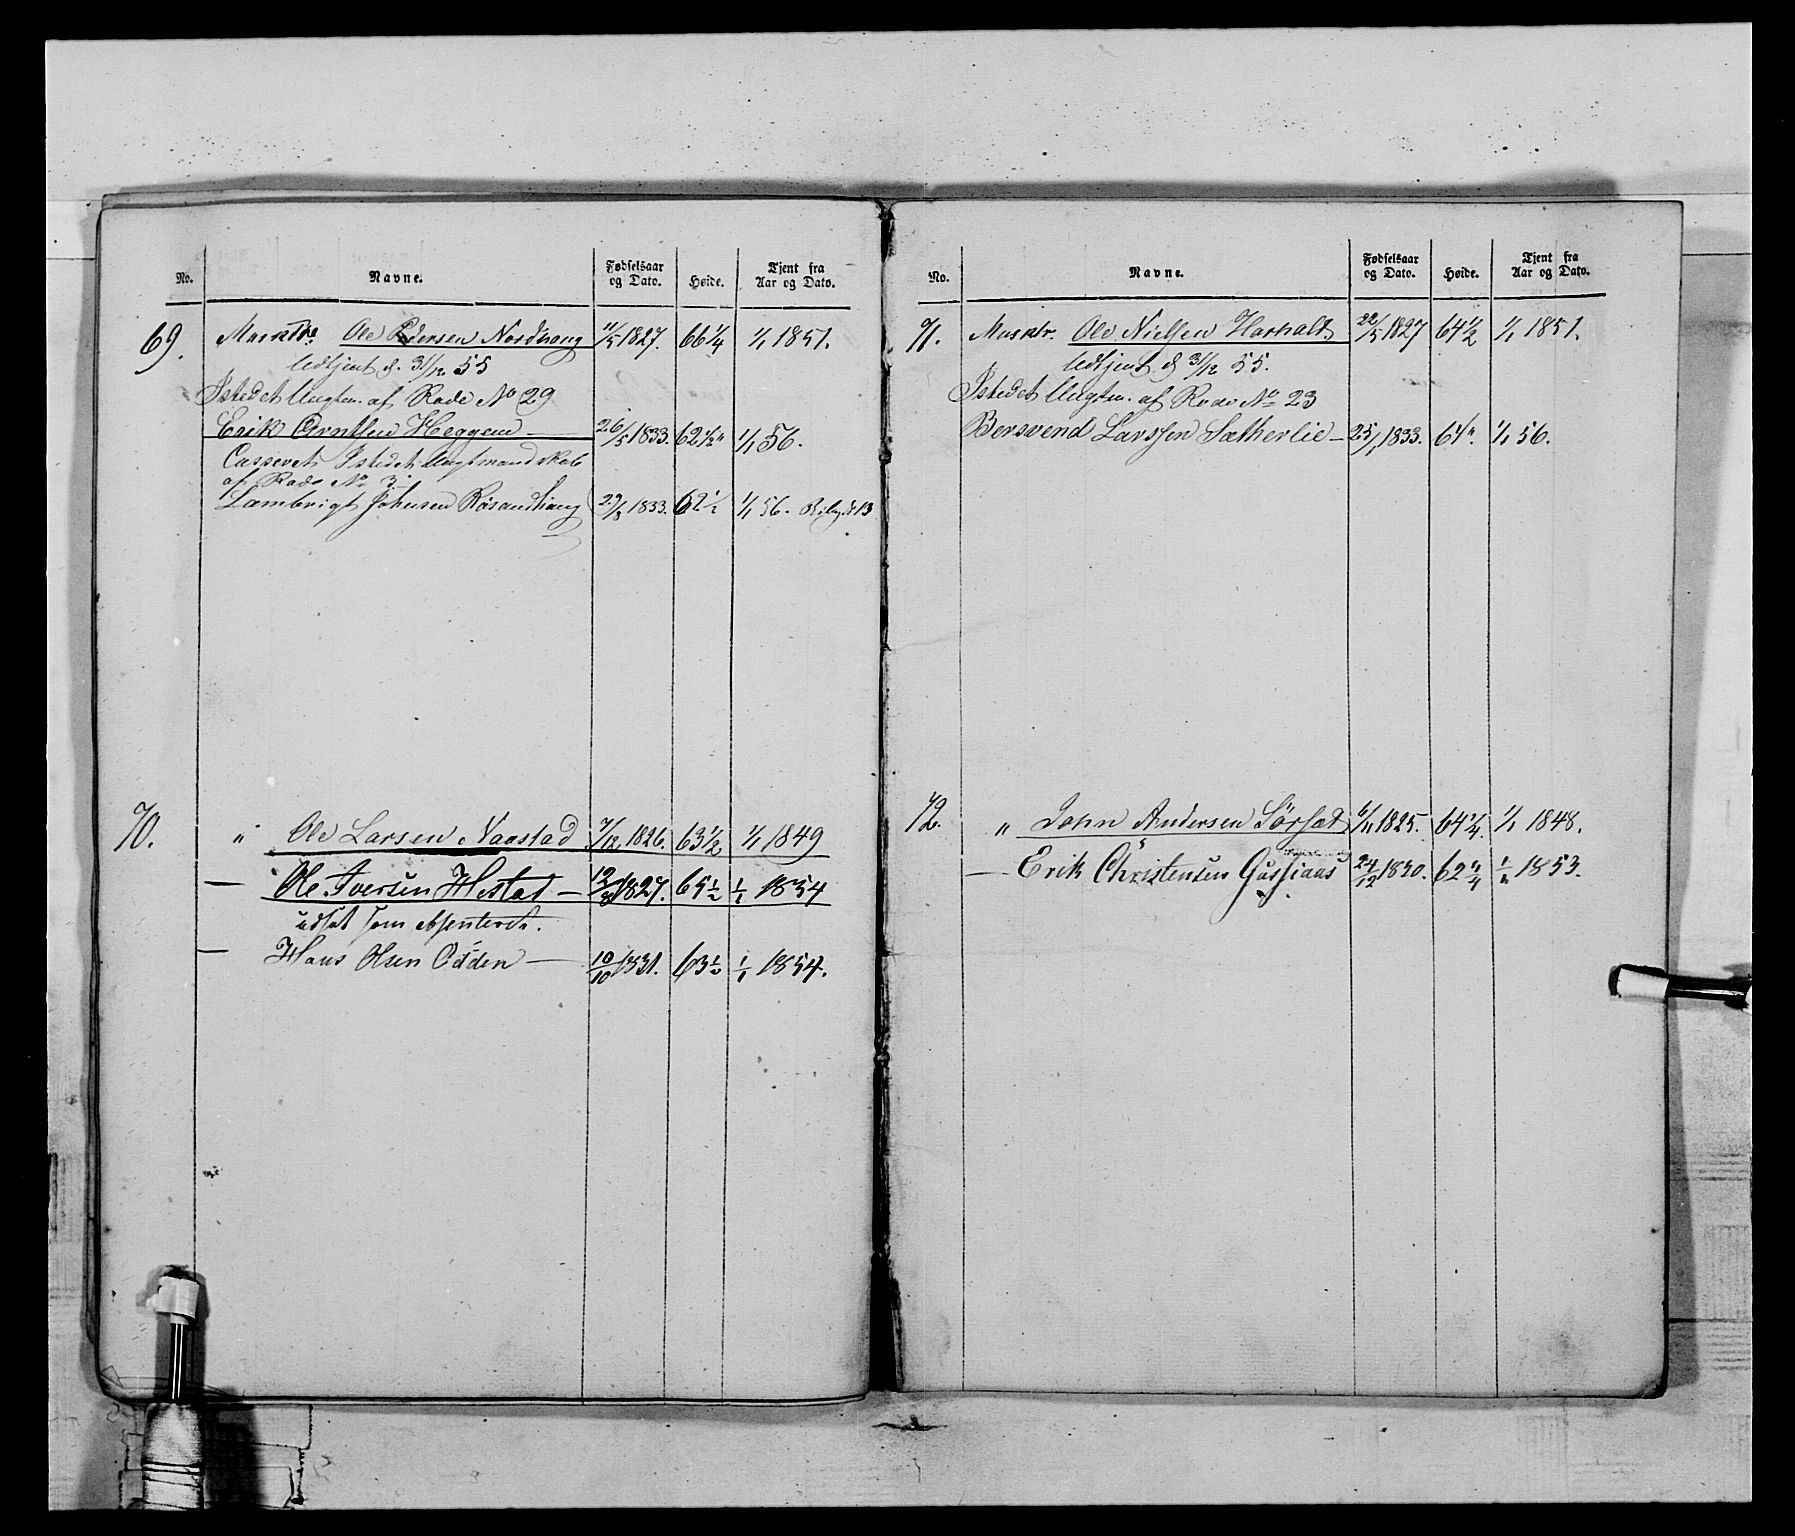 No. Navne. Fødselsaar og Dato. Høide. Tjent fra Aar og Dato.
69. Musktr. Ole Pedersen Nordhaug 11/5 1827. 66 1/4 1/1 1851.
Udtjent d. 31/12 55
Istedet Ungtm. af Rode No 29
Erik Arntsen Heggem — 26/5 1833. 62 1/2" 1/1 56.
Casseret Istedet Ungtmandskab
af Rode No 3.
Lambrigt Johnsen Røsandhaug 29/3 1833. 62 1/2 1/1 56.
70. " Ole Larsen Naastad 7/12 1826. 63 1/2 1/1 1849
— Ole Iversen Hestad — 12/8 1827. 65 1/2 1/1 1854
udsat som absenteret.
— Hans Olsen Odden — 10/10 1831. 63 1/2 1/1 1854.
No. Navne. Fødselsaar og Dato. Høide. Tjent fra Aar og Dato.
71. Musktr. Ole Nielsen Harhalt 22/5 1827 64 1/2 1/1 1851.
Udtjent d 31/12 55.
Istedet Ungtm. af Rode No 23
Bersvend Larssen Sætherlie — 25/1 1833. 64". 1/1 56.
72. " John Andersen Sørsæt 6/11 1825. 64 1/4 1/1 1848.
— Erik Christensen 24/12 1830. 62 1/4 1/1 1853.